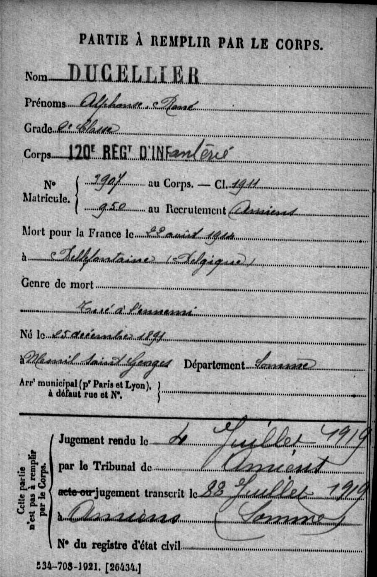 PARTIE À REMPLIR PAR LE CORPS.
Nom DUCELLIER
Prénoms Alphonse
Grade 2e Classe
Corps 120E REGT D'INFanterie
No Matricule. 2907 au Corps. — Cl. 1911
950 au Recrutement Amiens
Mort pour la France le 22 août 1914
à Bellefontaine (Belgique)
Genre de mort
Tué à l'ennemi
Né le 25 décembre 1891
à Mesnil Saint Georges Département Somme
Arrt municipal (pr Paris et Lyon), à défaut rue et No.
Cette partie n'est pas à remplir par le Corps.
Jugement rendu le 4 Juillet 1919
par le Tribunal de Amiens
acte ou jugement transcrit le 22 Juillet 1919
à Amiens (Somme)
No du registre d'état civil
534-708-1921. [26434.]